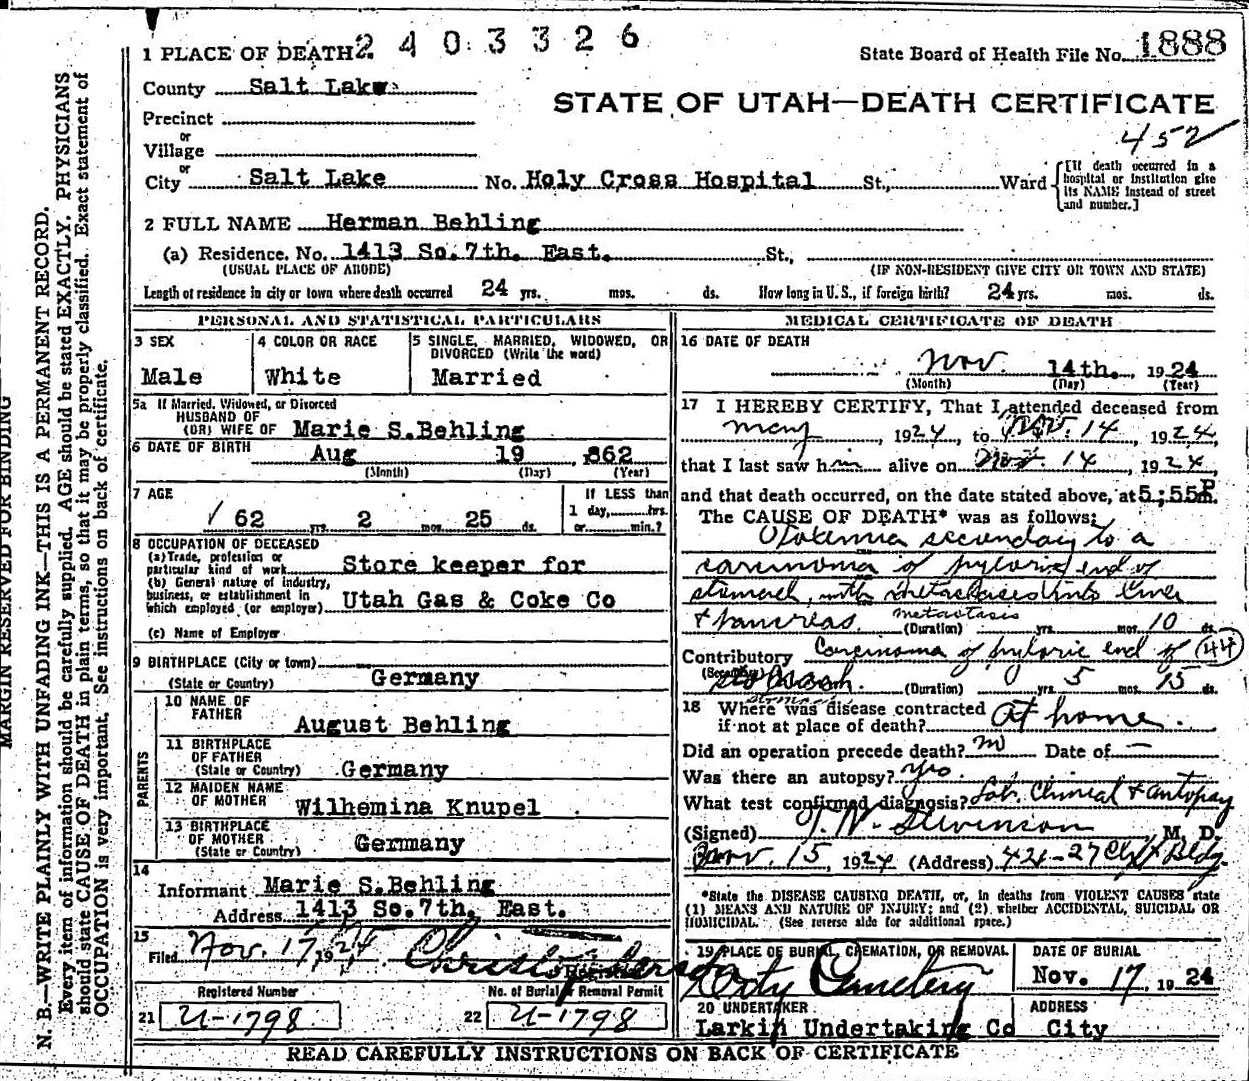 1 PLACE OF DEATH 2403326
State Board of Health File No. 1888
County Salt Lake
STATE OF UTAH—DEATH CERTIFICATE
Precinct
452
or
Village
or
City Salt Lake No. Holy Cross Hospital St., Ward
[If death occurred in a hospital or institution give its NAME instead of street and number.]
2 FULL NAME Herman Behling
(a) Residence. No. 1413 So. 7th. East. St.,
(USUAL PLACE OF ABODE) (IF NON-RESIDENT GIVE CITY OR TOWN AND STATE)
Length of residence in city or town where death occurred 24 yrs. mos. ds. How long in U. S., if foreign birth? 24 yrs. mos. ds.
PERSONAL AND STATISTICAL PARTICULARS
3 SEX
Male
4 COLOR OR RACE
White
5 SINGLE, MARRIED, WIDOWED, OR DIVORCED (Write the word)
Married
5a If Married, Widowed, or Divorced
HUSBAND OF
(OR) WIFE OF Marie S. Behling
6 DATE OF BIRTH Aug 19 862
(Month) (Day) (Year)
7 AGE
62 yrs. 2 mos. 25 ds.
If LESS than
1 day, hrs.
or min.?
8 OCCUPATION OF DECEASED
(a) Trade, profession or
particular kind of work Store keeper for
(b) General nature of industry,
business, or establishment in
which employed (or employer) Utah Gas & Coke Co
(c) Name of Employer
9 BIRTHPLACE (City or town)
(State or Country) Germany
PARENTS
10 NAME OF
FATHER August Behling
11 BIRTHPLACE
OF FATHER
(State or Country) Germany
12 MAIDEN NAME
OF MOTHER Wilhemina Knupel
13 BIRTHPLACE
OF MOTHER
(State or Country) Germany
14
Informant Marie S. Behling
Address 1413 So. 7th, East.
15
Filed Nov. 17, 1924
Registrar
Registered Number
21 U-1798
No. of Burial or Removal Permit
22 U-1798
MEDICAL CERTIFICATE OF DEATH
16 DATE OF DEATH
Nov. 14th. , 1924
(Month) (Day) (Year)
17 I HEREBY CERTIFY, That I attended deceased from
May , 1924, to Nov. 14 , 1924,
that I last saw him alive on Nov. 14 , 1924,
and that death occurred, on the date stated above, at 5:55 P m.
The CAUSE OF DEATH* was as follows:
secondary to a
carcinoma of pyloric end of
stomach, with metastases into liver
& pancreas. metastasis
(Duration) yrs. mos. 10 ds.
Contributory Carcinoma of pyloric end of 44
(Secondary) stomach.
stomach
(Duration) 0 yrs. 5 mos. 15 ds.
18 Where was disease contracted
if not at place of death? At home.
Did an operation precede death? no Date of —
Was there an autopsy? Yes.
What test confirmed diagnosis? Lab. Clinical & autopsy
(Signed) T. N. Stevenson , M. D.
Nov. 15, 1924 (Address) 424-27 Clift Bldg.
*State the DISEASE CAUSING DEATH, or, in deaths from VIOLENT CAUSES state
(1) MEANS AND NATURE OF INJURY; and (2) whether ACCIDENTAL, SUICIDAL OR
HOMICIDAL. (See reverse side for additional space.)
19 PLACE OF BURIAL, CREMATION, OR REMOVAL
City Cemetery
DATE OF BURIAL
Nov. 17, 1924
20 UNDERTAKER
Larkin Undertaking Co
ADDRESS
City
READ CAREFULLY INSTRUCTIONS ON BACK OF CERTIFICATE
MARGIN RESERVED FOR BINDING
N. B.—WRITE PLAINLY WITH UNFADING INK—THIS IS A PERMANENT RECORD.
Every item of information should be carefully supplied. AGE should be stated EXACTLY. PHYSICIANS
should state CAUSE OF DEATH in plain terms, so that it may be properly classified. Exact statement of
OCCUPATION is very important. See instructions on back of certificate.